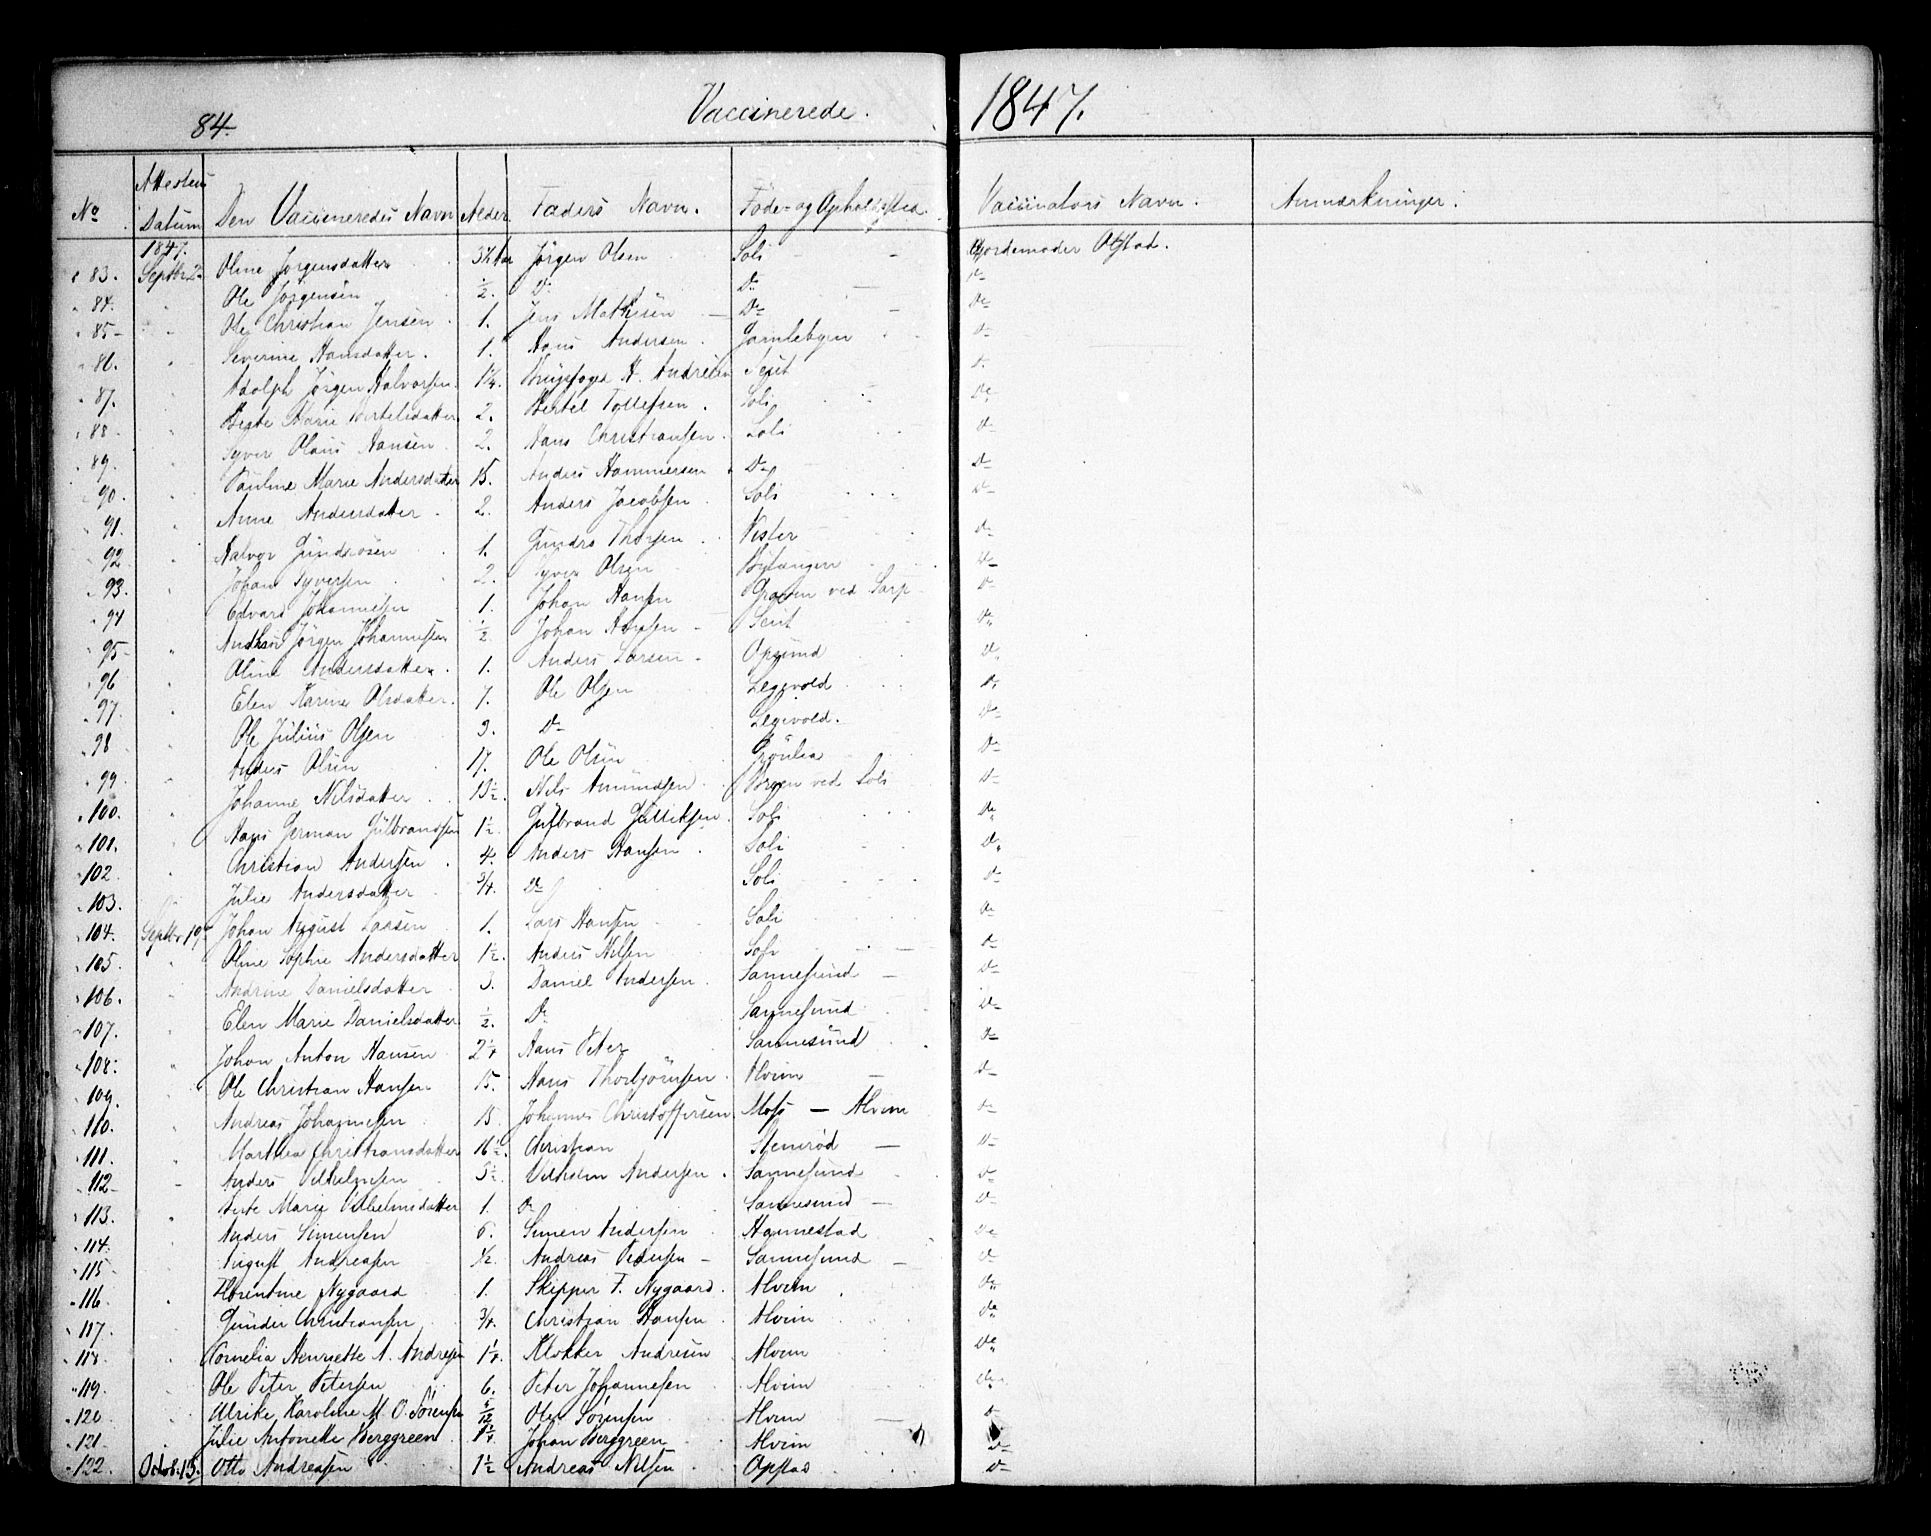 84.
Vaccinerede.
1847.
No
Attestens Datum
Den Vaccineredes Navn
Alder
Faders Navn.
Føde- og Opholdssted.
Vaccinators Navn.
Anmærkninger.
1847.
83. Septbr 22 Oline Jørgensdatter Jørgen Olsen Soli Gjordemoder Opstad.
84. " Ole Jørgensen ½ Do Do Do
85 " Ole Christian Jensen 1. Jens Mathisen Do Do
86. " Severine Hansdatter. 1. Hans Andersen Do
87. " Adolph Jørgen Halvorsen 1¼ H. Andresen Do
88 " Marie Bertelsdatter 2. Bertel Tollefsen. Soli Do
89. " Syver Olaus Hansen 2. Hans Christiansen Soli Do
90. " Pauline Marie Andersdatter 15. Anders Hammersen Do Do
91. " Anne Andersdatter 2. Anders Jacobsen Soli Do
92. " Halvor 1. Thorsen Vister Do
93. " Johan Syversen 2. Syver Olsen Do
94 " Edvard Johannesen 1. Johan Hansen ved Sarp Do
95 " Jørgen Johannesen ½ Johan Hansen Do
96 " Oline Andersdatter. 1. Anders Larsen Opsund Do
97. " Elen Karine Olsdatter. 7. Ole Olsen Do
98 " Ole Julius Olsen 3. Do Do
99 " Anders Olsen 17. Ole Olsen Do
100. " Johanne Nilsdatter 13½. Nils Amundsen ved Soli Do
101. " Hans Herman Gulbrandsen 1½ Gulbrand Gulliksen. Soli Do
102 " Christian Andersen 4. Anders Hansen Soli Do
103. " Julie Andersdatter ¾ Do Soli Do
104. Septbr 19. Johan August Larsen 1. Lars Hansen Soli Do
105. " Oline Sophie Andersdatter 1½. Anders Nilsen Soli Do
106. " Andrine Danielsdatter 3. Daniel Andersen Sannesund Do
107. " Elen Marie Danielsdatter ½ Do Sannesund Do
108: " Johan Anton Hansen 2¼ Hans Peter Sannesund Do
109. " Ole Christian Hansen 15. Hans Thorbjørnsen Alvim Do
110. " Andreas Johannesen 15. Johannes Christoffersen Moss — Alvim Do
111. " Marthea Christiansdatter 16½. Christian Stenrød Do
112 " Anders Vilhelmsen 3½ Vilhelm Andersen. Sannesund Do
113. " Marie Vilhelmsdatter 1. Do Sannesund Do
114. " Anders Simensen 6. Simen Andersen Hannestad Do
115 " August Andreasen ½ Andreas Pedersen Sannesund Do
116. " Florentine Nygaard 1. Skipper F. Nygaard. Alvim Do
117. " Gunder Christiansen ¾ Christian Hansen Alvim Do
118 " Cornelia Henriette A. Andresen 1¼ Klokker Andresen Alvim Do
119. " Ole Peter Petersen 6. Peter Johannesen Alvim Do
120 " Ulrike Karoline M. O. Sørensen Ole Sørensen Alvim Do
121. " Julie Antonette Berggreen 1¼ Johan Berggreen Alvim Do
122. Octob. 15. Otto Andreasen 1½ Andreas Nilsen Opstad Do